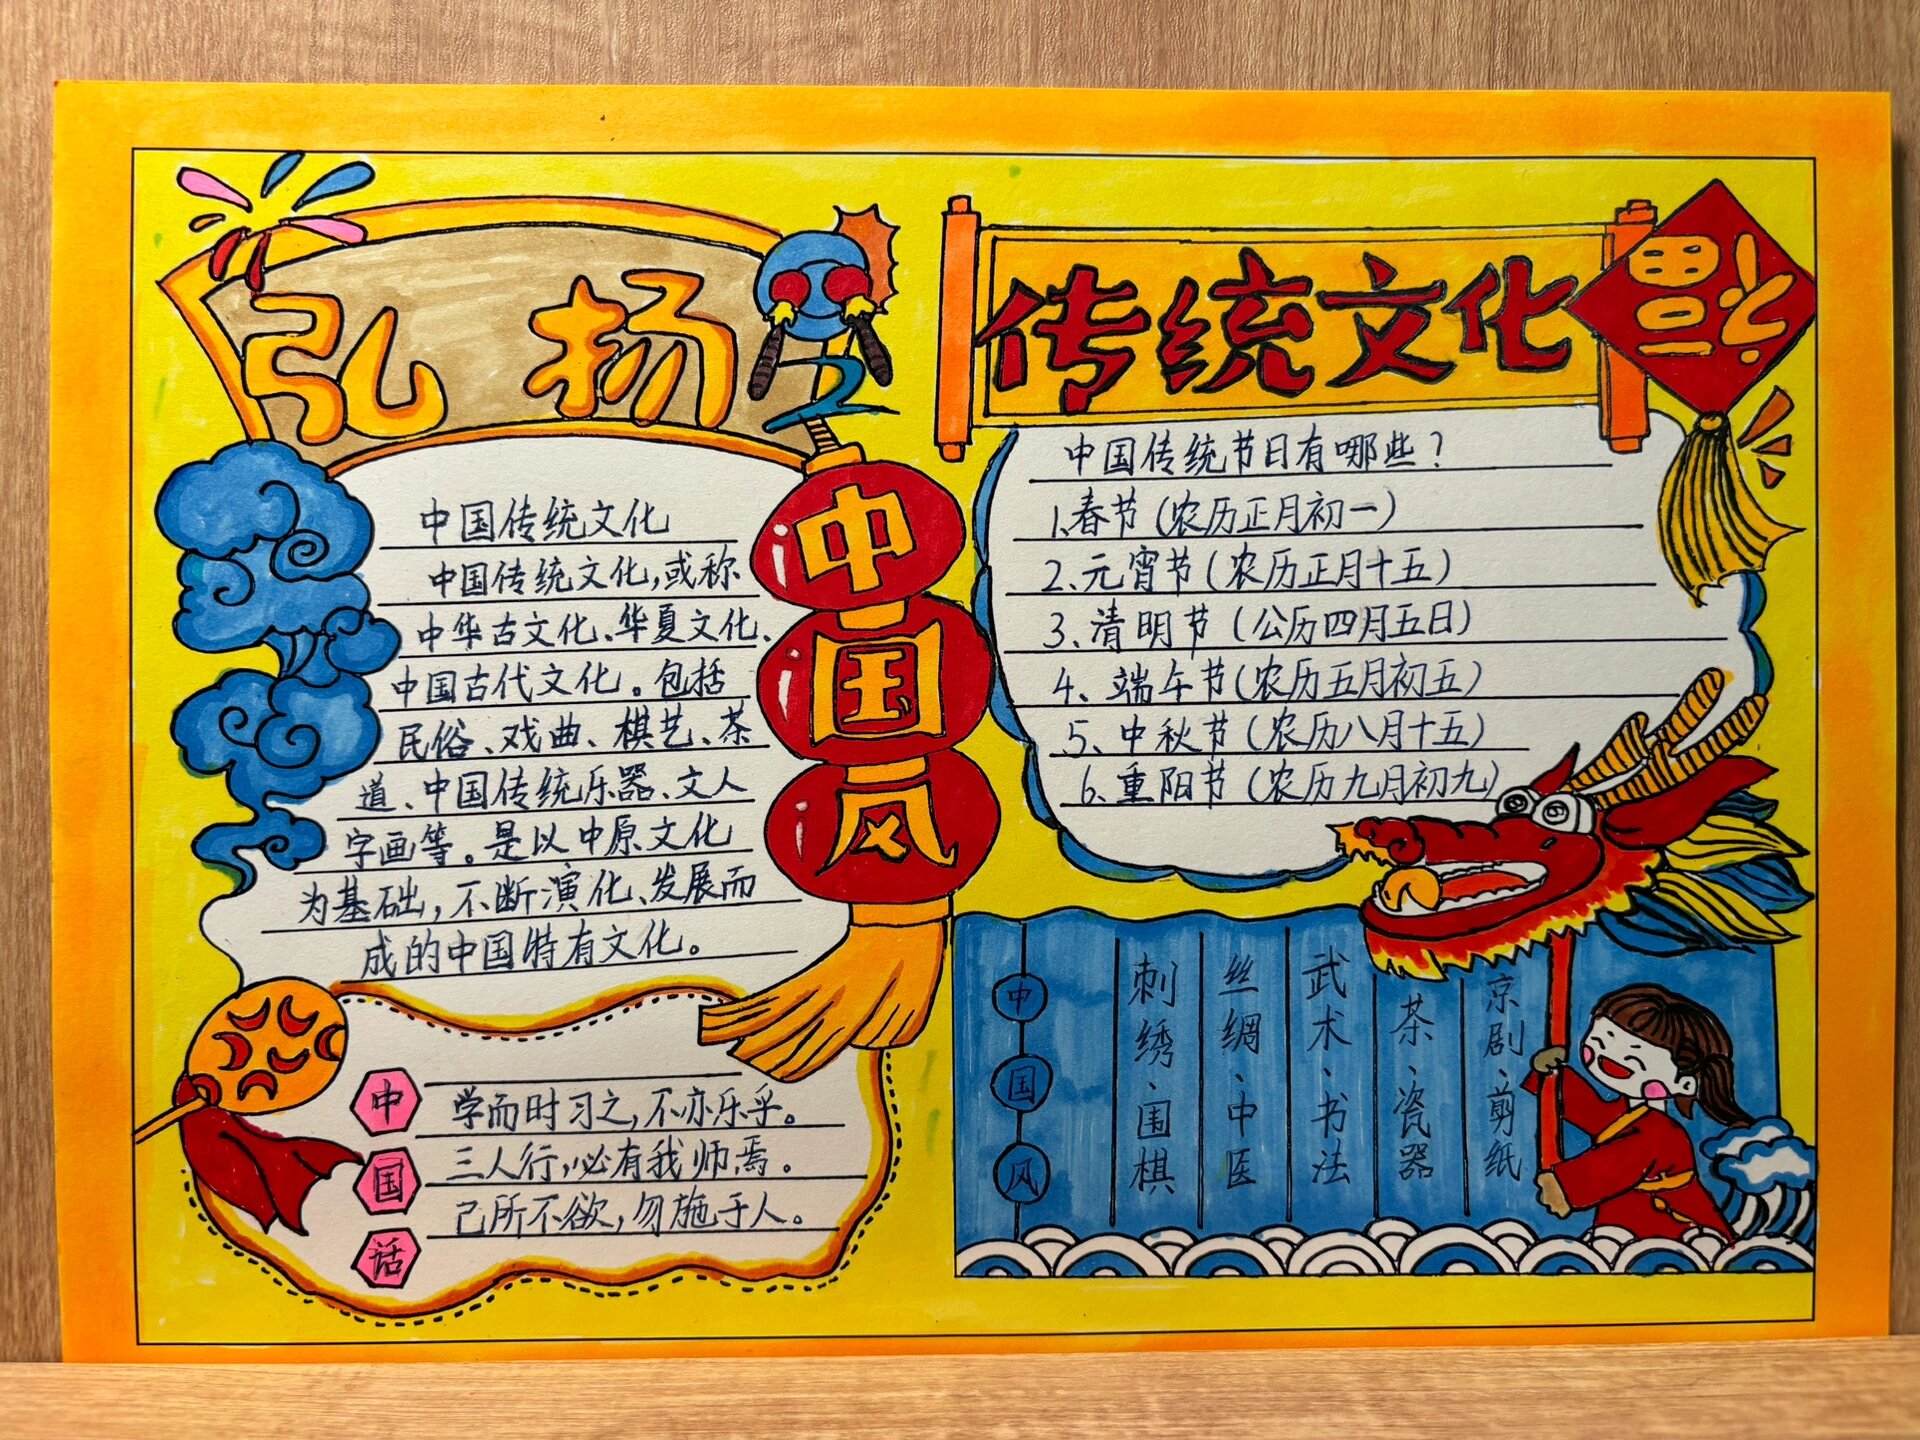 弘扬
传统文化
福
中国风
中国传统文化
中国传统文化,或称
中华古文化、华夏文化、
中国古代文化。包括
民俗、戏曲、棋艺、茶
道、中国传统乐器、文人
字画等。是以中原文化
为基础,不断演化、发展而
成的中国特有文化。
中国话
学而时习之,不亦乐乎。
三人行,必有我师焉。
己所不欲,勿施于人。
中国传统节日有哪些?
1、春节(农历正月初一)
2、元宵节(农历正月十五)
3、清明节(公历四月五日)
4、端午节(农历五月初五)
5、中秋节(农历八月十五)
6、重阳节(农历九月初九)
中国风
刺绣、围棋
丝绸、中医
武术、书法
茶、瓷器
京剧、剪纸